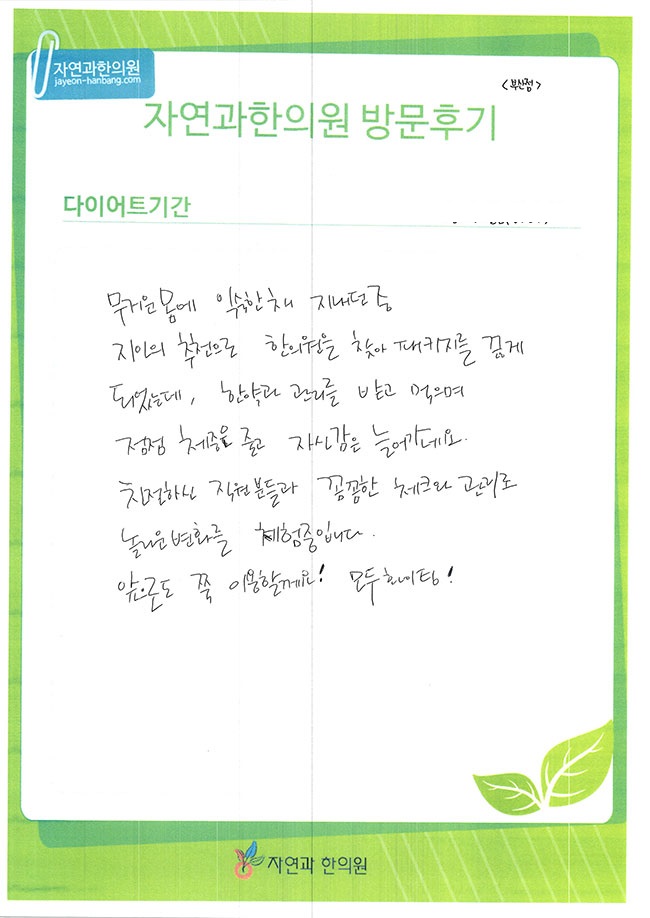 자연과한의원
jayeon-hanbang.com
<부산점>
자연과한의원 방문후기
다이어트기간
무거운 몸에 익숙한채 지내던 중
지인의 추천으로 한의원을 찾아 패키지를 끊게
되었는데, 한약과 관리를 받고 먹으며
점점 체중은 줄고 자신감은 늘어가네요.
친절하신 직원분들과 꼼꼼한 체크와 관리로
놀라운 변화를 체험중입니다.
앞으로도 쭉 이용할께요! 모두 화이팅!
자연과 한의원